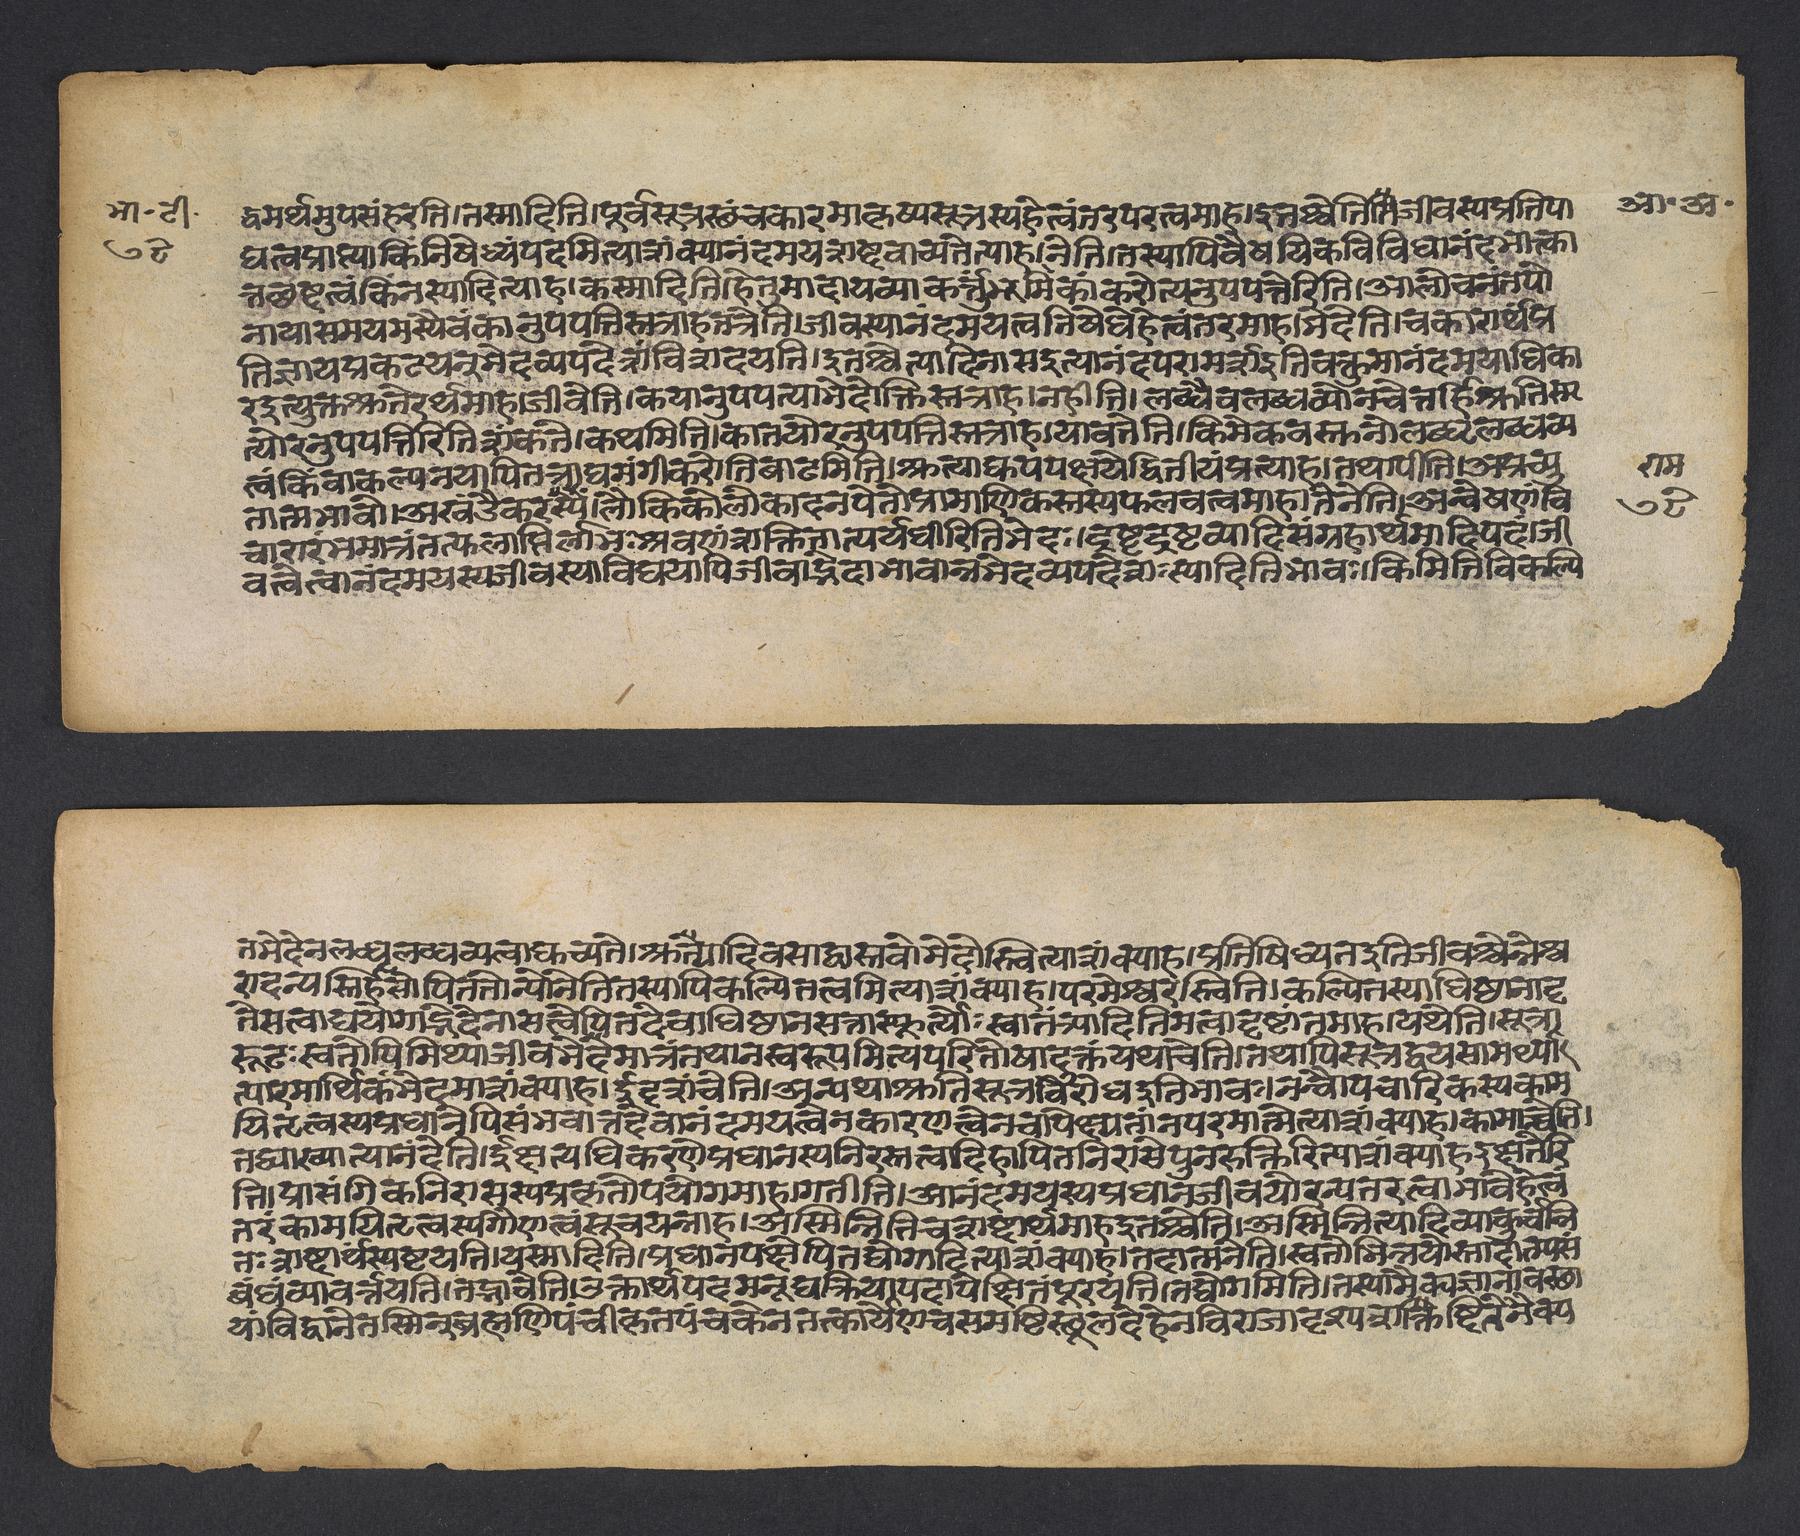 भा॰ टी॰
७८
आ॰ अ॰
द्धमर्थमुपसंहरति।तस्मादिति।पूर्वसूत्रस्थंचकारमाकृष्यसूत्रस्यहेत्वंतरपरत्वमाह।इतश्चेतिजीवस्यप्रतिपा
द्यत्वप्राप्त्याकिंनिषेध्यंपदमित्याशंक्यानंदमयशब्दवाच्यंतेत्याह।नेति।तस्यापिवैषयिकविविधानंदभोत्का
तच्छब्दत्वंकिंनस्यादित्याह।कस्मादिति।हेतुमादायव्याकर्त्तुं करोत्यनुपपत्तेरिति।आलोचनंतपो
नायासमयमस्यैवंकानुपपत्तिस्तत्राहतत्रेति।जीवस्यानंदमयत्वनिषेधेहेत्वंतरमाह।भेदेति।चकारार्थंप्र
तिज्ञायप्रकटयन्भेदव्यपदेशंविशदयति।इतश्चेत्यादिनासइत्यानंदपरामर्शइतिवक्तुमानंदमयाधिका
रइत्युक्तश्रुतेरर्थमाह।जीवेति।कयानुपपत्याभेदोक्तिस्तत्राह।नहीति।लब्धैवलब्धव्योनचेत्तर्हिश्रुतिस्मृ
त्योरनुपपत्तिरितिशंकते।कथमिति।कातयोरनुपपत्तिस्तत्राह।यावतेति।किमेकवस्तुनोलब्धृलब्धव्य
त्वंकिंवाकल्पनयापितत्राद्यमंगीकरोतिबाढमिति।श्रुत्याद्यपपक्षयेद्वितीयंप्रत्याह।तथापीति।अप्रच्यु
तात्मभावो।अखंडैकरस्ये।लौकिकोलोकादनपेतोप्रामाणिकस्तस्यफलवत्वमाह।तेनेति।अन्वेषणंवि
चारारंभमात्रंतत्फलाप्तिर्लाभःश्रवणंशक्तितात्पर्यधीरितिभेदः।दृष्टदृष्टव्यादिसंग्रहार्थमादिपदं।जी
वत्वेत्वानंदमयस्यजीवस्याविद्ययापिजीवाद्भेदाभावान्नभेदव्यपदेशःस्यादितिभावः।किमितिविकल्पि
राम
७८
तभेदेनलब्धृलब्धव्यत्वाद्युच्यते।श्रुत्यादिवसाद्वास्तवोभेदोस्त्वित्याशंक्याह।प्रतिषिध्यतइतिजीवश्चेन्नेश्व
रादन्यस्तर्हिसोपिततोन्योनेतितस्यापिकल्पितत्वमित्याशंक्याह।परमेश्वरस्त्विति।कल्पितस्याधिष्ठानादृ
तेसत्वाद्ययोगाद्भेदेनासत्वेपितदेवाधिष्ठानसत्तास्फूर्त्योःस्वातंत्र्यादितिमत्वादृष्टांतमाह।यथेति।सूत्रा
रूढःस्वतोपिमिथ्याजीवभेदमात्रंतथानस्वरूपमित्यपरितोषादुक्तंयथाचेति।तथापिसूत्रद्वयसामर्थ्या
त्पारमार्थिकंभेदमाशंक्याह।ईदृशंचेति।अन्यथाश्रुतिसूत्रविरोधइतिभावः।नन्वौपचारिकस्यकाम
यितृत्वस्यप्रधानेपिसंभवात्तदेवानंदमयत्वेनकारणत्वेनचापेक्ष्यतांनपरमात्मेत्याशंक्याह।कामाच्चेति।
तद्व्याख्यात्यानंदेति।ईक्षत्यधिकरणेप्रधानस्यनिरस्तत्वादिहापितनिरासेपुनरुक्तिरित्याशंक्याहईक्षतेरि
ति।प्रासंगिकनिरासस्यप्रकृतोपयोगमाह।गतीति।आनंदमयस्यप्रधानजीवयोरन्यतरत्वाभावेहेत्वं
तरंकामयितृत्वस्यगौणत्वंसूचयन्नाह।अस्मिन्नितिचशब्दार्थमाहइतश्चेति।अस्मिन्नित्यादिव्याकुर्वन्नि
तःशब्दार्थंस्पष्टयति।यस्मादिति।प्रधानपक्षेपितद्योगादित्याशंक्याह।तदात्मनेति।स्वतोभिन्नयोस्तादात्म्यसं
बंधंव्यावर्त्तयति।तद्भावेति।उक्तार्थंपदमनूद्यक्रियापदापेक्षितंपूरयति।तद्योगमिति।तस्यामैक्यज्ञानावस्था
यांविद्वानेतस्मिन्ब्रह्मणिपंचीकृतपंचकेनतत्कार्येणचसमष्टिस्थूलदेहेनविराजादृश्यशब्दितेनैक्य